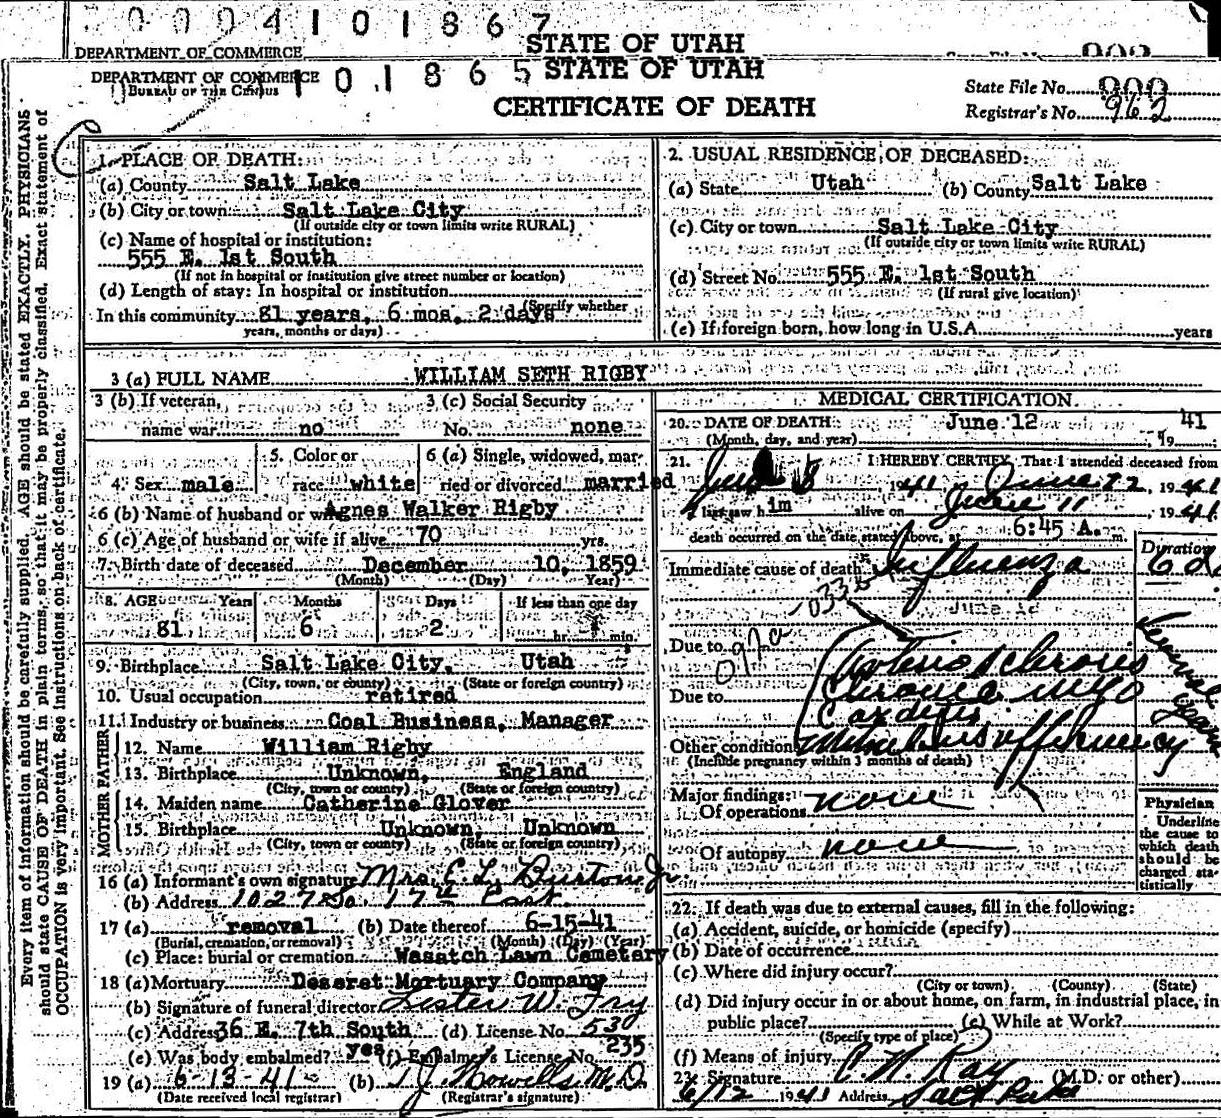 0004101867
STATE OF UTAH
DEPARTMENT OF COMMERCE
DEPARTMENT OF COMMERCE
BUREAU OF THE CENSUS
101865
STATE OF UTAH
CERTIFICATE OF DEATH
State File No. 900
Registrar's No. 962
Every item of information should be carefully supplied. AGE should be stated EXACTLY. PHYSICIANS
should state CAUSE OF DEATH in plain terms, so that it may be properly classified. Exact statement of
OCCUPATION is very important. See instructions on back of certificate.
1. PLACE OF DEATH:
(a) County Salt Lake
(b) City or town Salt Lake City
(If outside city or town limits write RURAL)
(c) Name of hospital or institution:
555 E. 1st South
(If not in hospital or institution give street number or location)
(d) Length of stay: In hospital or institution
(Specify whether
In this community 81 years, 6 mos. 2 days
years, months or days)
2. USUAL RESIDENCE OF DECEASED:
(a) State Utah (b) County Salt Lake
(c) City or town Salt Lake City
(If outside city or town limits write RURAL)
(d) Street No. 555 E. 1st South
(If rural give location)
(e) If foreign born, how long in U.S.A. years
3 (a) FULL NAME WILLIAM SETH RIGBY
3 (b) If veteran, name war no
3 (c) Social Security No. none
4. Sex male
5. Color or race white
6 (a) Single, widowed, married or divorced married
6 (b) Name of husband or wife Agnes Walker Rigby
6 (c) Age of husband or wife if alive 70 yrs.
7. Birth date of deceased December 10, 1859
(Month) (Day) Year)
8. AGE Years Months Days If less than one day
81 6 2 hr. min.
9. Birthplace Salt Lake City, Utah
(City, town, or county) (State or foreign country)
10. Usual occupation retired
11. Industry or business Coal Business, Manager
FATHER
12. Name William Rigby
13. Birthplace Unknown, England
(City, town or county) (State or foreign country)
MOTHER
14. Maiden name Catherine Glover
15. Birthplace Unknown, Unknown
(City, town or county) (State or foreign country)
16 (a) Informant's own signature Mrs. E. L. Burton Jr.
(b) Address 1027 So. 17th East
17 (a) removal (b) Date thereof 6-15-41
(Burial, cremation, or removal) (Month) (Day) (Year)
(c) Place: burial or cremation Wasatch Lawn Cemetary
18 (a) Mortuary Deseret Mortuary Company
(b) Signature of funeral director Lester W. Fry
(c) Address 36 E. 7th South (d) License No. 530
(e) Was body embalmed? yes (f) Embalmer's License No. 235
19 (a) 6-13-41 (b) Howells M.D.
(Date received local registrar) (Registrar's signature)
MEDICAL CERTIFICATION
20. DATE OF DEATH June 12 1941
(Month, day, and year)
21. I HEREBY CERTIFY, That I attended deceased from
June 1941 June 12, 1941
I last saw him alive on June 11, 1941
death occurred on the date stated above, at 6:45 A. m.
Immediate cause of death Influenza
Duration
-033b
Due to Arteriosclerosis
Due to Chronic myo
carditis
Other condition Mitral insufficiency
(Include pregnancy within 3 months of death)
Several years
Major findings:
Of operations none
Of autopsy none
Physician
Underline
the cause to
which death
should be
charged sta-
tistically
22. If death was due to external causes, fill in the following:
(a) Accident, suicide, or homicide (specify)
(b) Date of occurrence
(c) Where did injury occur?
(City or town) (County) (State)
(d) Did injury occur in or about home, on farm, in industrial place, in
public place? (e) While at Work?
(Specify type of place)
(f) Means of injury
23. Signature C. W. Ray (M.D. or other)
6/12 1941 Address Salt Lake